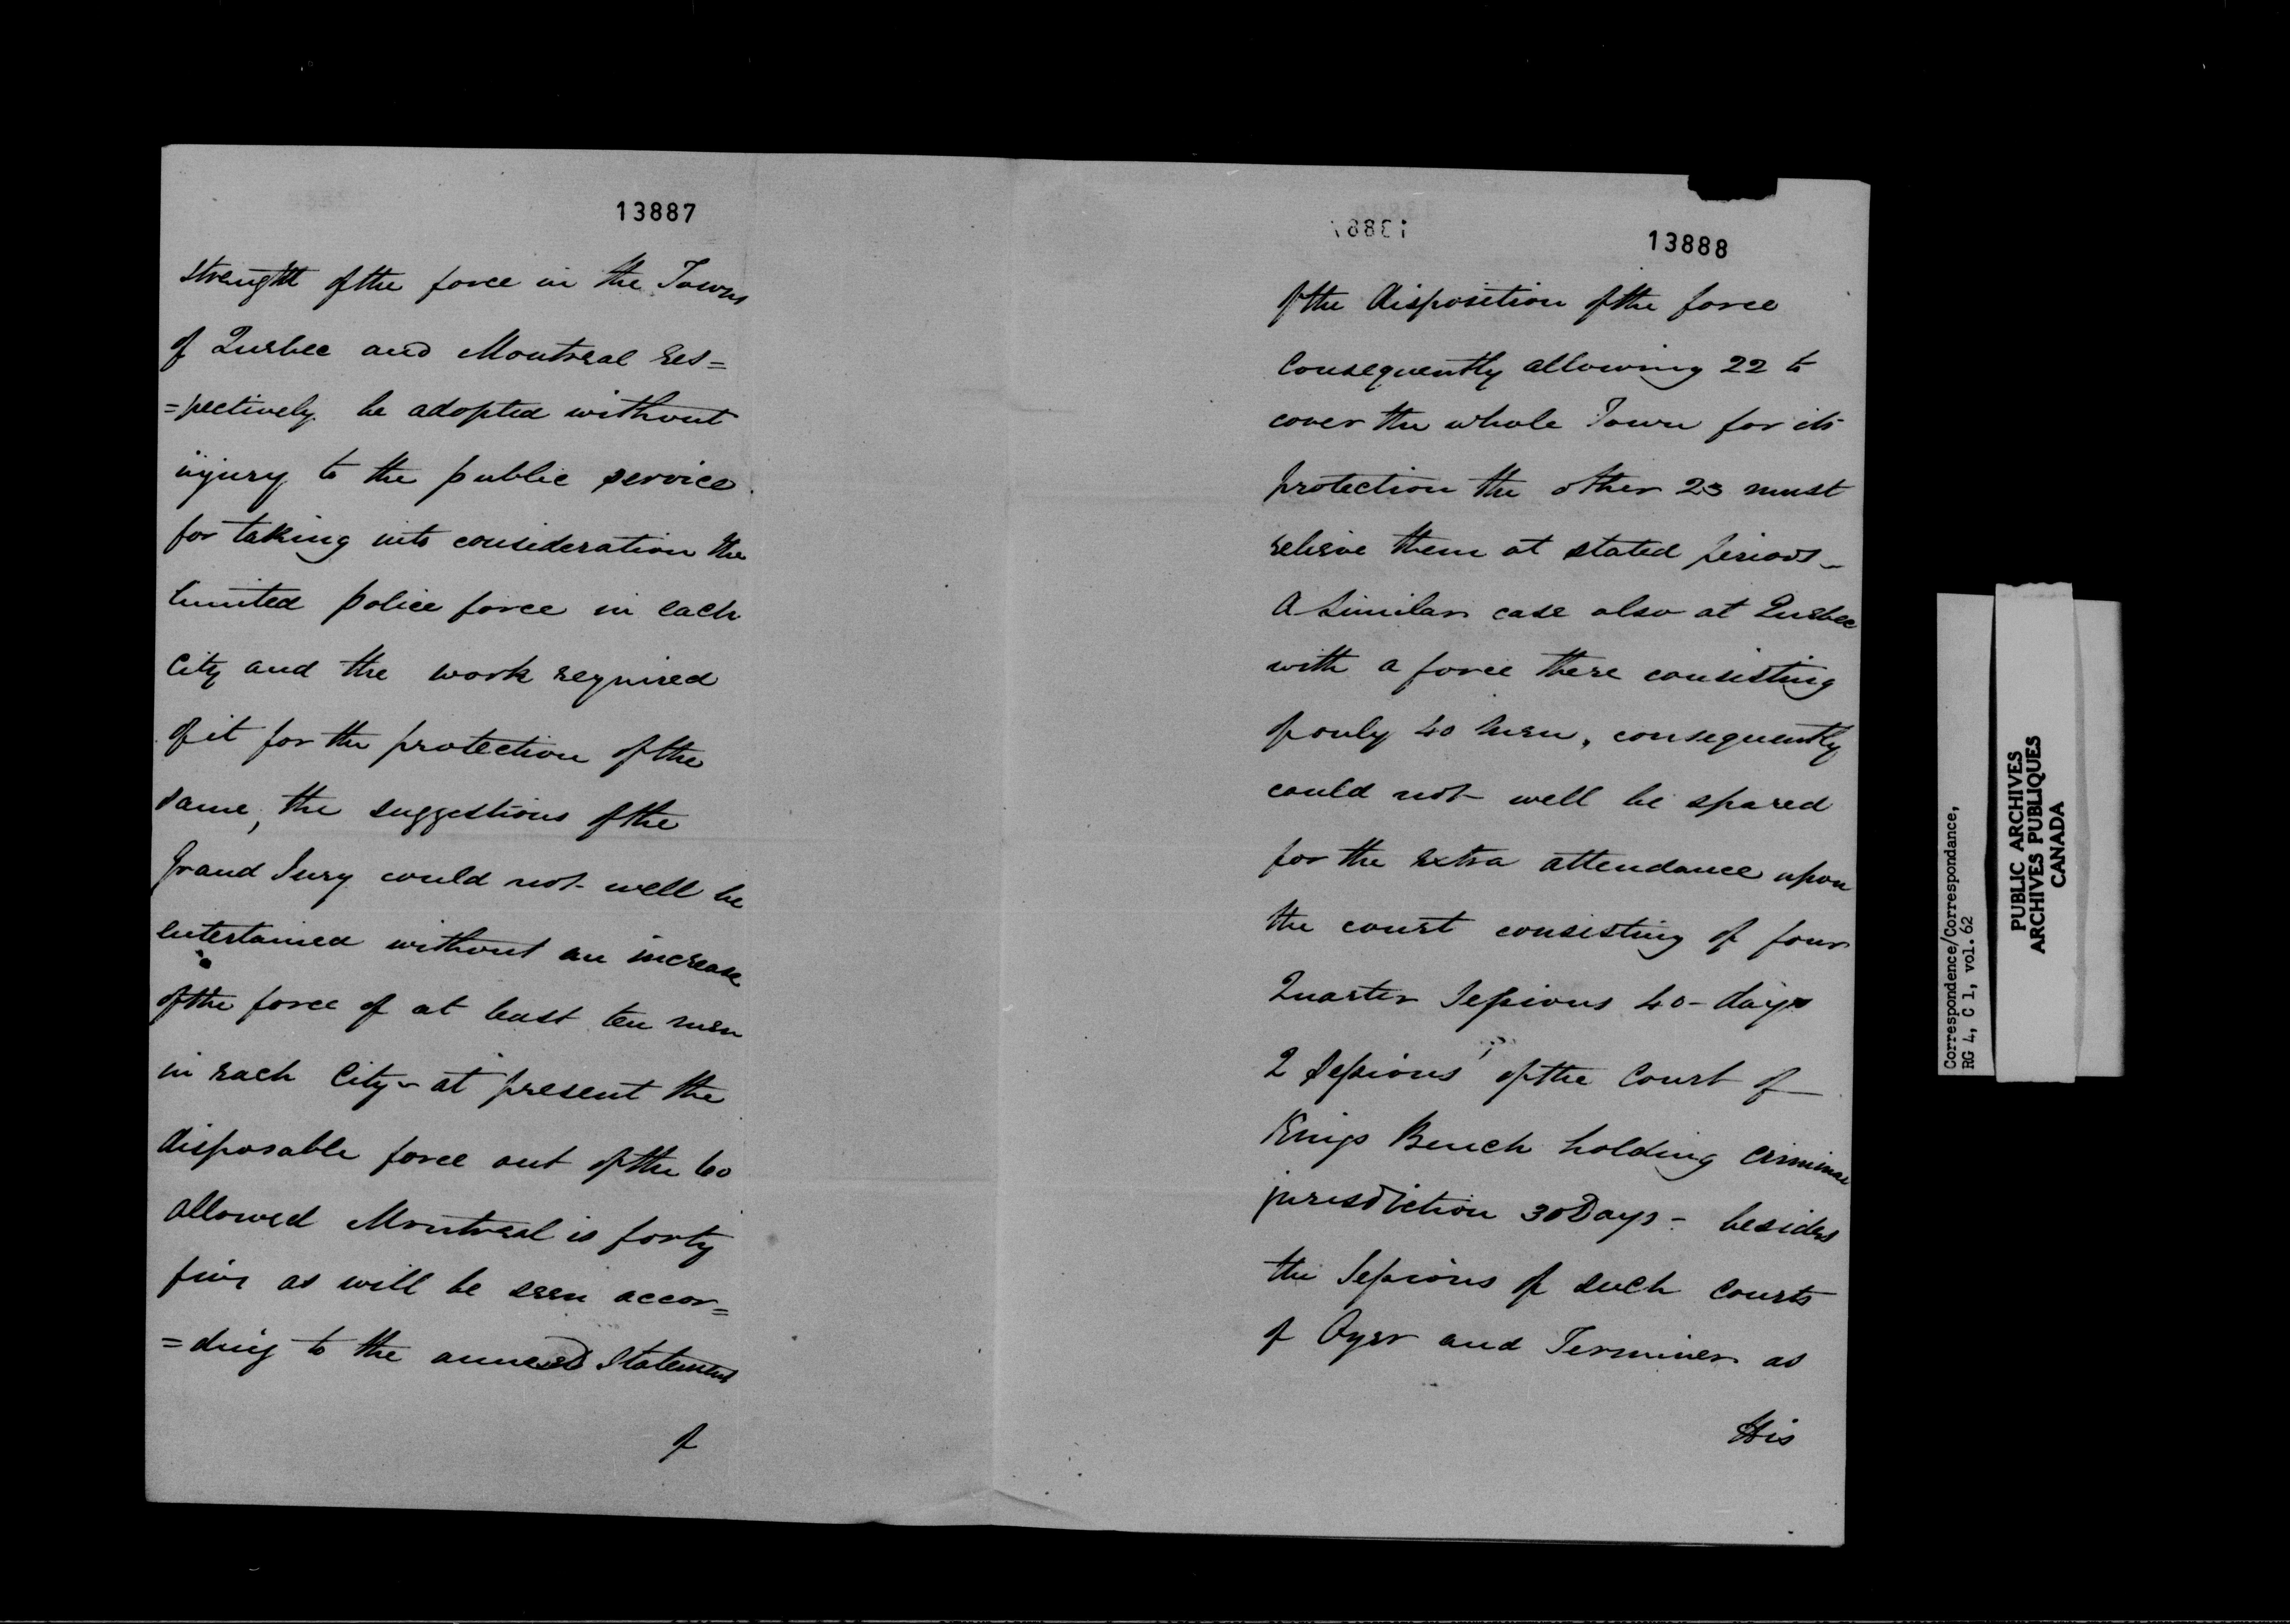 13887
strenght of the force in the Towns
of Quebec and Montreal res=
=pectively be adopted without
injury to the public service
for taking into consideration the
limited police force in each
City and the work required
of it for the protection of the
same, the suggestions of the
Grand Jury could not well be
entertained without an increase
of the force of at least ten men
in each City - at present the
disposable force out of the 60
allowed Montreal is forty
five as will be seen accor=
=ding to the annexed Statement
of
13888
of the disposition of the force
Consequently allowing 22 to
cover the whole Town for its
protection the other 23 must
relieve them at stated periods -
A similar case also at Quebec
with a force there consisting
of only 40 men, consequently
could not well be spared
for the extra attendance upon
the court consisting of four
Quarter Sessions 40 - days
2 Sessions of the Court of
Kings Bench holding Criminal
jurisdiction 30 Days - besides
the Sessions of such Courts
of Oyer and Terminer as
His
Correspondence/Correspondance,
RG 4, C 1, vol. 62
PUBLIC ARCHIVES
ARCHIVES PUBLIQUES
CANADA